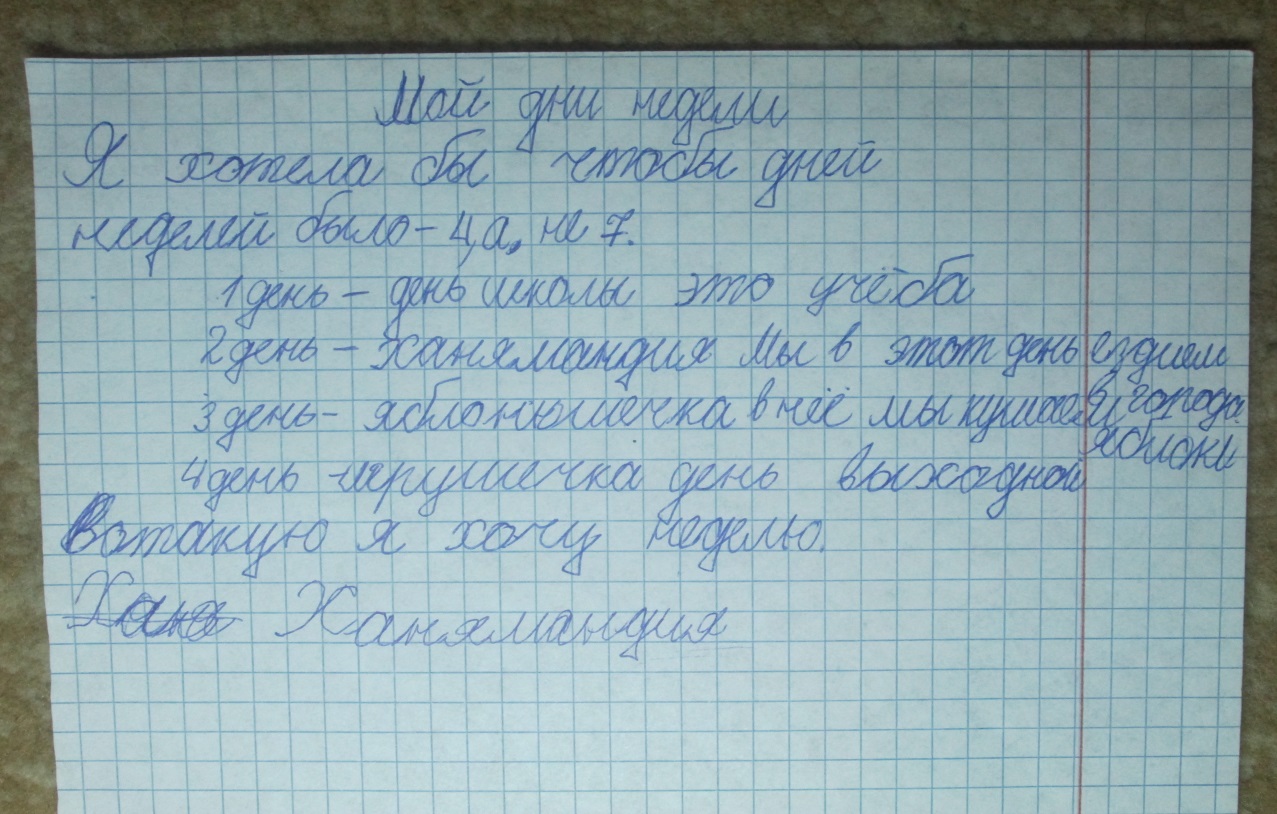 Мой дни недели
Я хотела бы чтобы дней
неделей было - 4, а, не 7.
1 день - день школы это учёба
2 день - ханямандия Мы в этот день ездием
в города.
3 день - яблонюшечка в неё мы кушаем
яблоки
4 день - игрушечка день выходной
Вотакую я хочу неделю.
Ханя Ханямандия